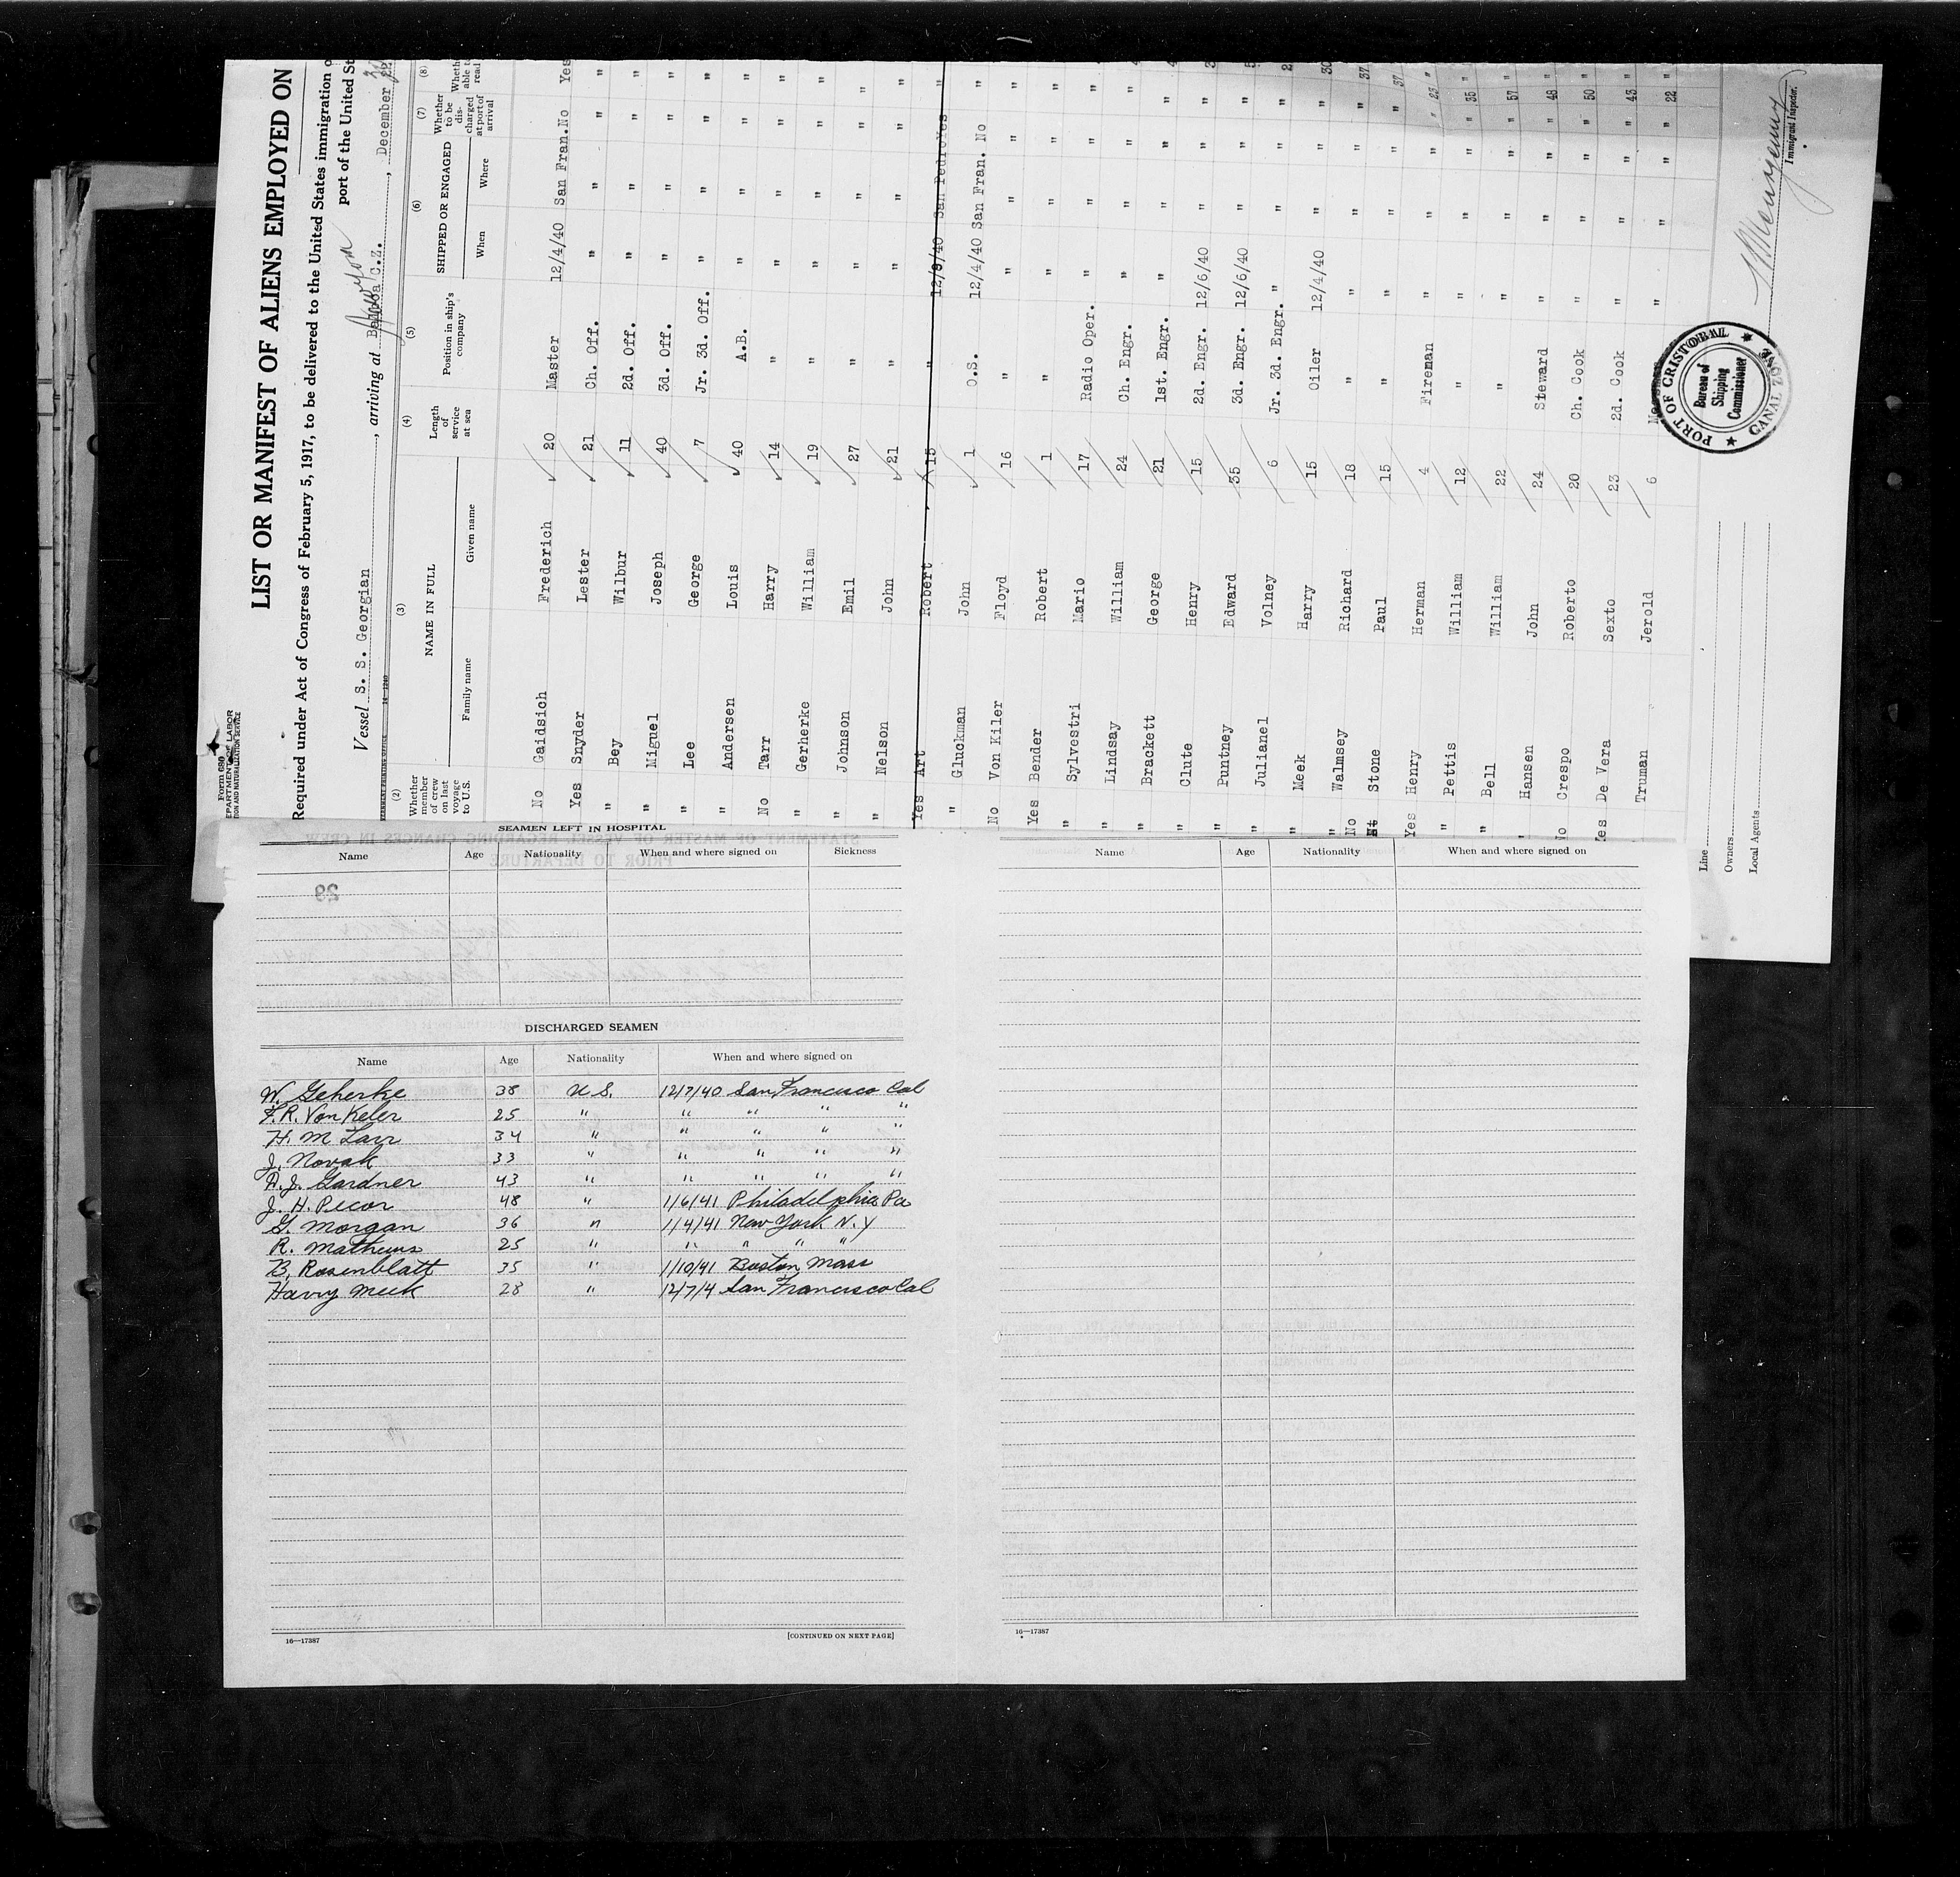 Form 680
DEPARTMENT OF LABOR
LIST OR MANIFEST OF ALIENS EMPLOYED ON
Required under Act of Congress of February 5, 1917, to be delivered to the United States immigration o
port of the United St
Vessel S. S. Georgian, arriving at Balboa C.Z., December
(2) (3) (4) (5) (6) (7) (8)
Whether member of crew on last voyage to U.S.
NAME IN FULL
Family name Given name
Length of service at sea
Position in ship's company
SHIPPED OR ENGAGED
When Where
Whether to be discharged at port of arrival
Wheth able t read
No Gaidsich Frederich 20 Master 12/4/40 San Fran. No Yes
Yes Snyder Lester 21 Ch. Off. " " " "
" Bey Wilbur 11 2d. Off. " " " "
" Miguel Joseph 40 3d. Off. " " " "
" Lee George 7 Jr. 3d. Off. " " " "
" Andersen Louis 40 A.B. " " " "
No Tarr Harry 14 " " " " "
" Gerherke William 19 " " " " "
" Johnson Emil 27 " " " " "
" Nelson John 21 " " " " "
Yes Art Robert 15 " 12/9/40 San Pedro Yes "
" Gluckman John 1 O.S. 12/4/40 San Fran. No "
No Von Kiler Floyd 16 " " " " "
Yes Bender Robert 1 " " " " "
" Sylvestri Mario 17 Radio Oper. " " " "
" Lindsay William 24 Ch. Engr. " " " "
" Brackett George 21 1st. Engr. " " " "
" Clute Henry 15 2d. Engr. 12/6/40 " " "
" Puntney Edward 35 3d. Engr. 12/6/40 " " "
" Julianel Volney 6 Jr. 3d. Engr. " " " "
" Meek Harry 15 Oiler 12/4/40 " " "
" Walmsey Richard 18 " " " " "
No Stone Paul 15 " " " " " 37
Yes Henry Herman 4 Fireman " " " " 23 "
" Pettis William 12 " " " " " 35 "
" Bell William 22 " " " " " 57 "
" Hansen John 24 Steward " " " " 48 "
No Crespo Roberto 20 Ch. Cook " " " " 50 "
Yes De Vera Sexto 23 2d. Cook " " " " 43 "
Truman Jerold 6 " " " " 22 "
PORT OF CRISTOBAL
Bureau of Shipping Commissioner
CANAL ZONE
Immigrant Inspector.
Line
Owners
Local Agents
SEAMEN LEFT IN HOSPITAL
Name Age Nationality When and where signed on Sickness
DISCHARGED SEAMEN
Name Age Nationality When and where signed on
W. Geherke 38 U.S. 12/7/40 San Francisco Cal
F.R. Von Keler 25 " " " " "
H. M Tarr 34 " " " " "
J. Novak 33 " " " " "
A. J. Gardner 43 " " " " "
J. H. Pecor 48 " 1/6/41 Philadelphia Pa
G. Morgan 36 " 1/4/41 New York N.Y
R. Mathews 25 " " " " "
B. Rosenblatt 35 " 1/10/41 Boston Mass
Harry Meek 28 " 12/7/4 San Francisco Cal
16—17387 [CONTINUED ON NEXT PAGE]
Name Age Nationality When and where signed on
16—17387